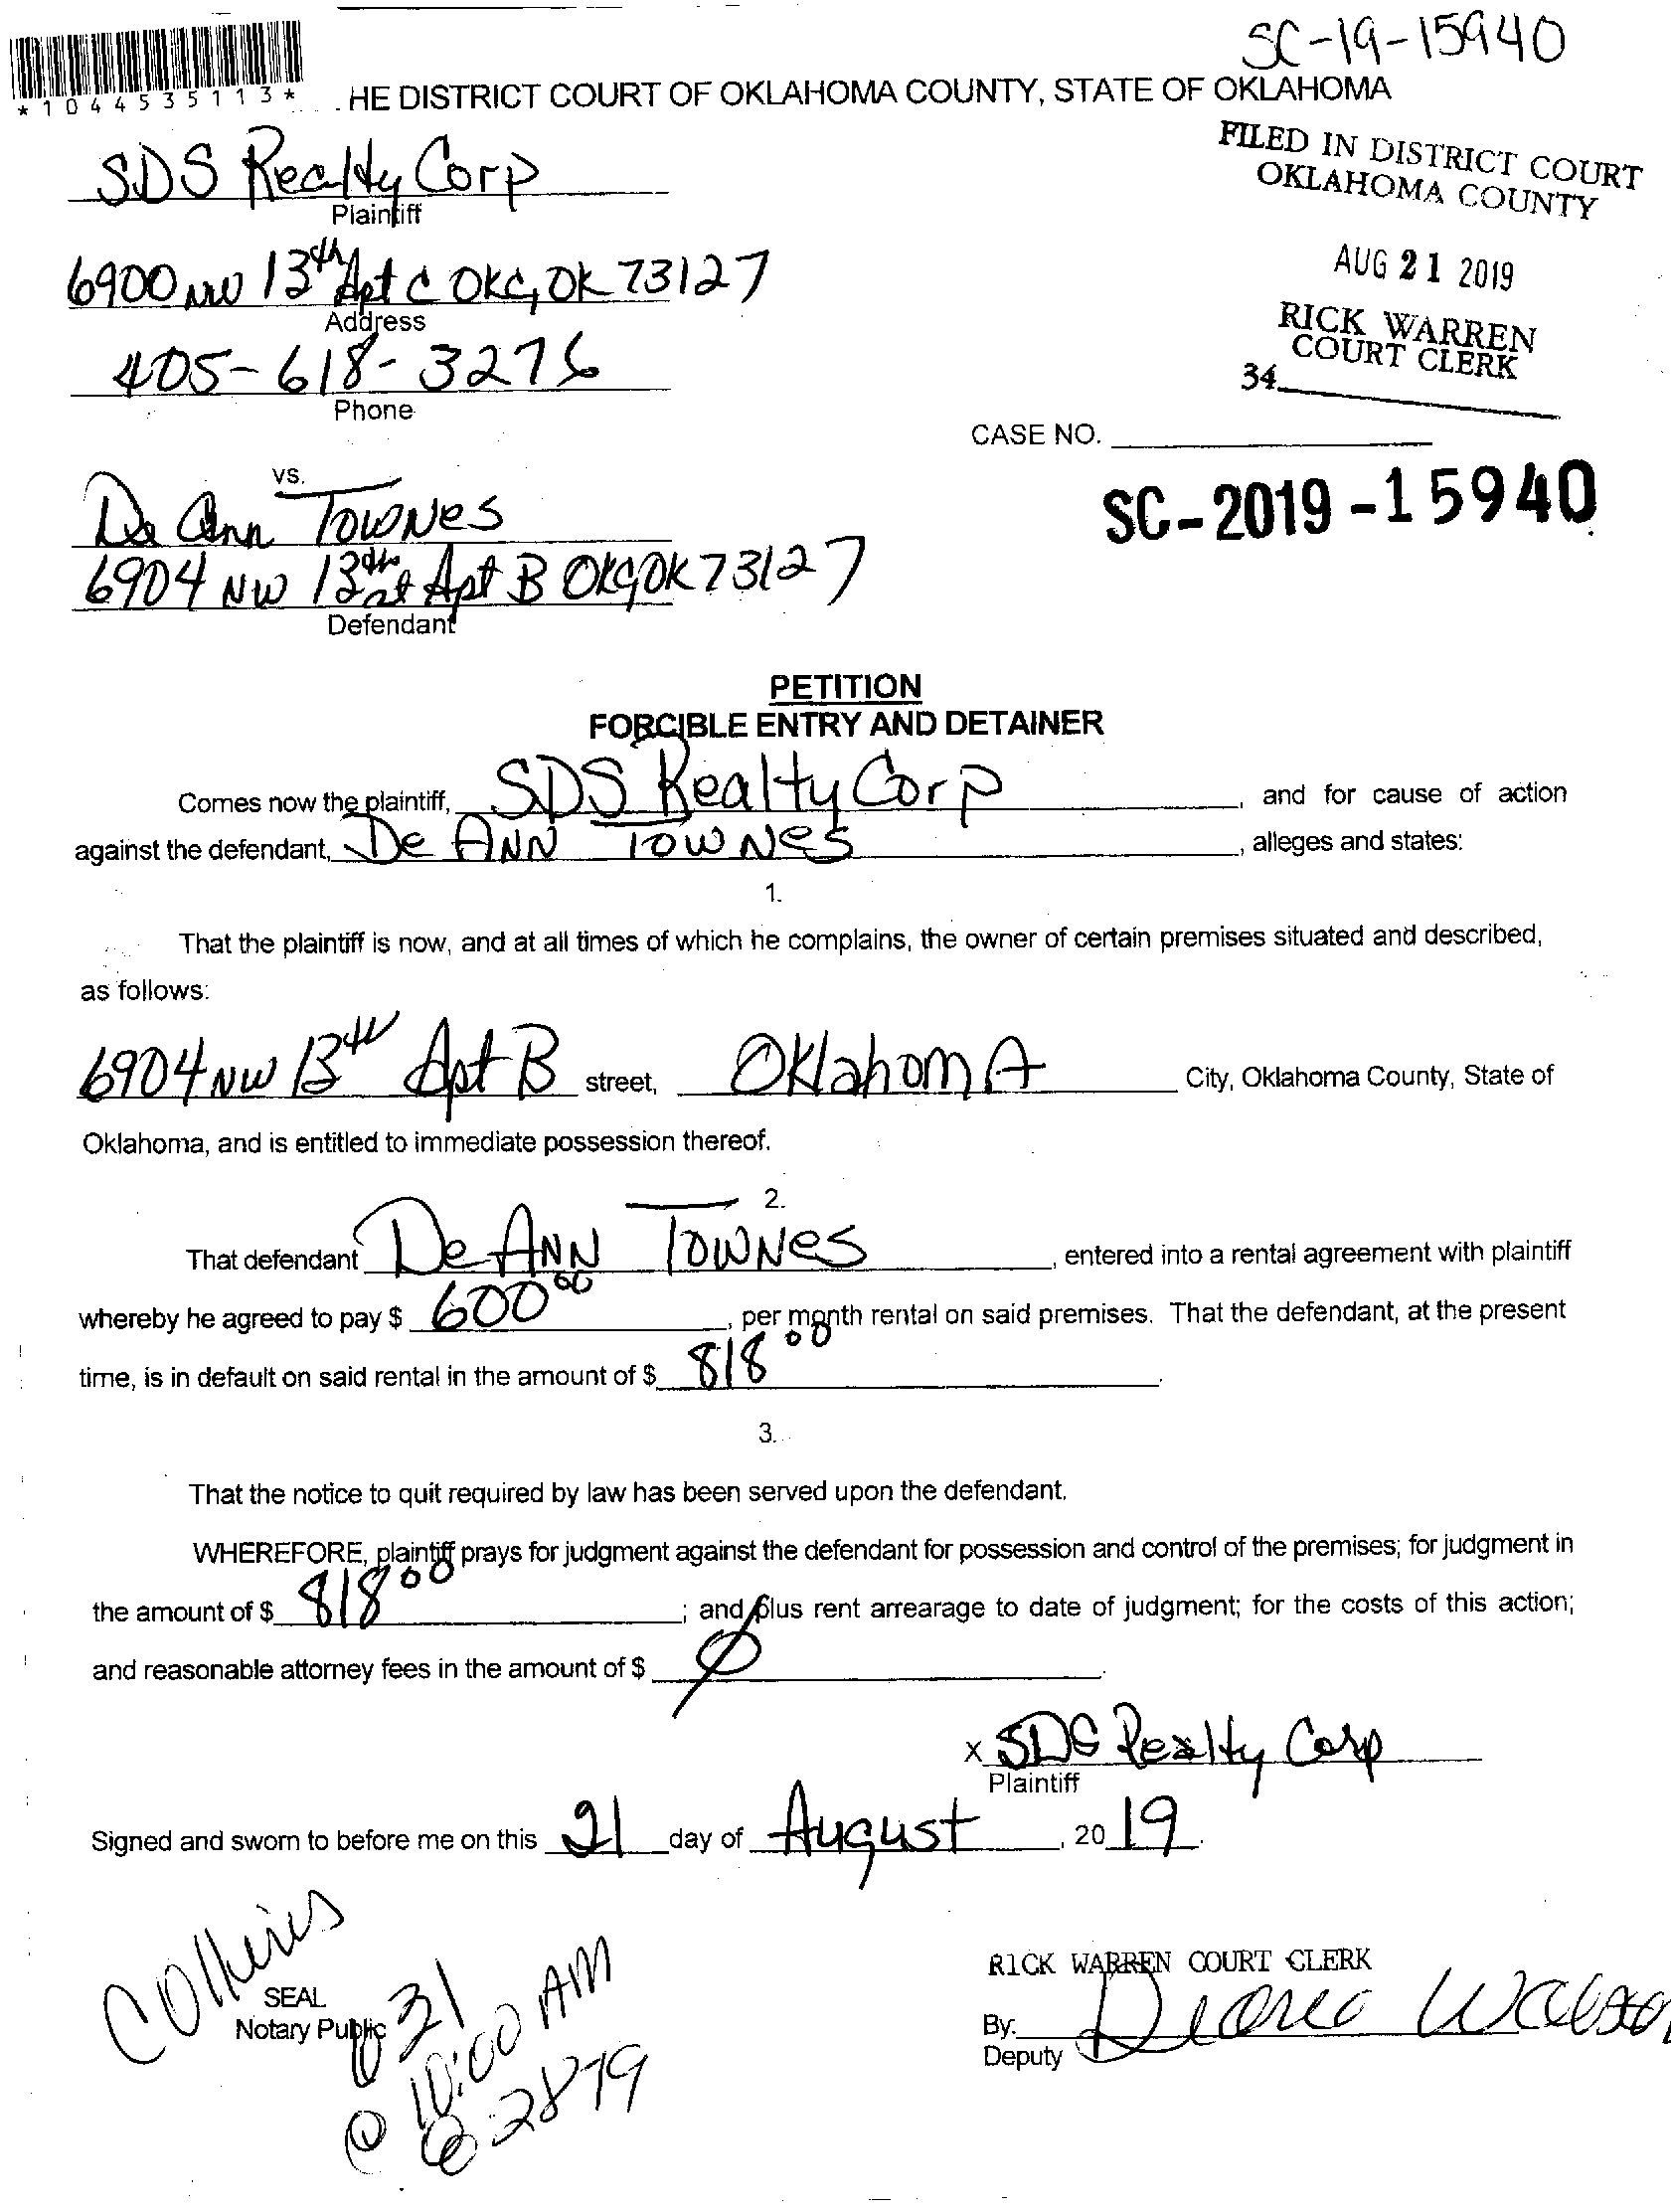 SC-19-15940
*1044535113*
HE DISTRICT COURT OF OKLAHOMA COUNTY, STATE OF OKLAHOMA
FILED IN DISTRICT COURT
OKLAHOMA COUNTY
SDS Realty Corp
Plaintiff
AUG 21 2019
6900 NW 13th Apt C OKC, OK 73127
Address
RICK WARREN
COURT CLERK
34
405-618-3276
Phone
CASE NO.
vs.
SC-2019-15940
De Ann Townes
6904 NW 13th st Apt B OKC OK 73127
Defendant
PETITION
FORCIBLE ENTRY AND DETAINER
Comes now the plaintiff, SDS Realty Corp, and for cause of action
against the defendant, De ANN Townes, alleges and states:
1.
That the plaintiff is now, and at all times of which he complains, the owner of certain premises situated and described,
as follows:
6904 NW 13th Apt B street, OklahomA City, Oklahoma County, State of
Oklahoma, and is entitled to immediate possession thereof.
2.
That defendant De ANN TOWNes, entered into a rental agreement with plaintiff
whereby he agreed to pay $ 600 00, per month rental on said premises. That the defendant, at the present
time, is in default on said rental in the amount of $ 818 00.
3.
That the notice to quit required by law has been served upon the defendant.
WHEREFORE, plaintiff prays for judgment against the defendant for possession and control of the premises; for judgment in
the amount of $ 818 00; and plus rent arrearage to date of judgment; for the costs of this action;
and reasonable attorney fees in the amount of $ Ø.
x SDS Realty Corp
Plaintiff
Signed and sworn to before me on this 21 day of August, 2019.
Collins
SEAL
Notary Public
31
@ 10:00 AM
RICK WARREN COURT CLERK
By:
Deputy